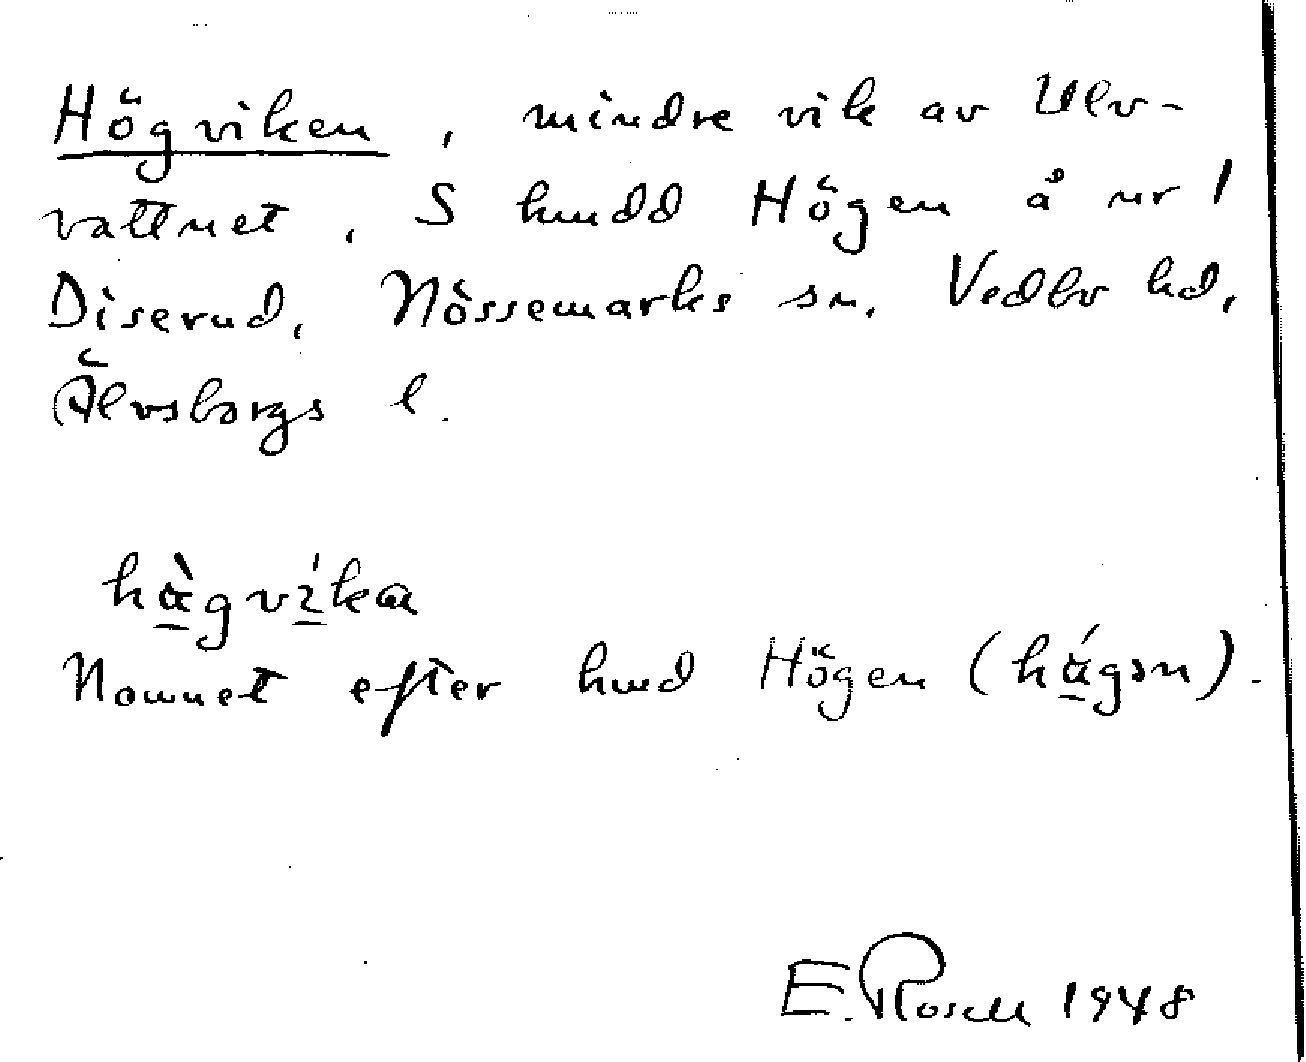 Högviken, mindre vik av Ulv-
vattnet, S hmdd Högen å nr 1
Diserud, Nössemarks sn, Vedbo hd,
Älvsborgs l.
hὰgvíka
Namnet efter hmd Högen (hágən).
E. Rosell 1948